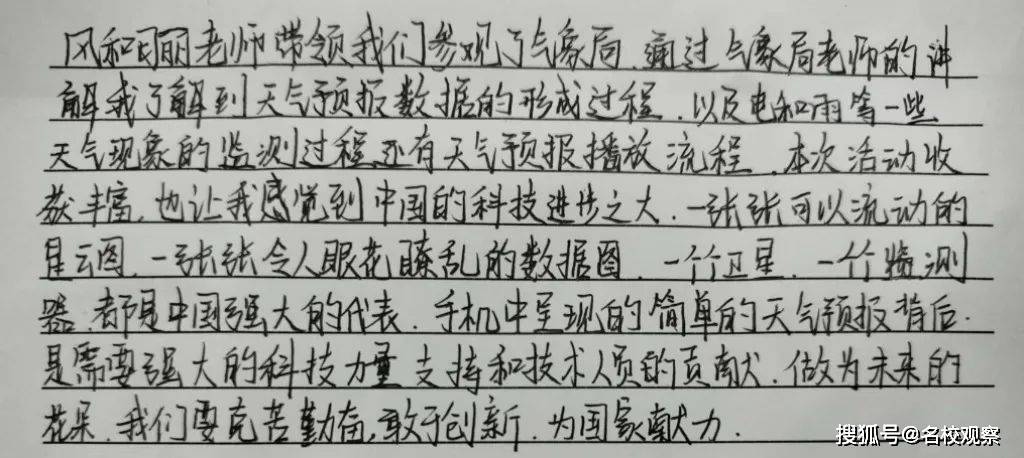 风和日丽老师带领我们参观了气象局.通过气象局老师的讲
解我了解到天气预报数据的形成过程.以及电和雨等一些
天气现象的监测过程.还有天气预报播放流程.本次活动收
获丰富.也让我感觉到中国的科技进步之大.一张张可以流动的
星云图.一张张令人眼花瞭乱的数据图.一个个卫星.一个个监测
器.都是中国强大的代表.手机中呈现的简单的天气预报背后.
是需要强大的科技力量支持和技术人员的贡献.做为未来的
花朵.我们要克苦勤奋,敢于创新.为国家献力.
搜狐号@名校观察